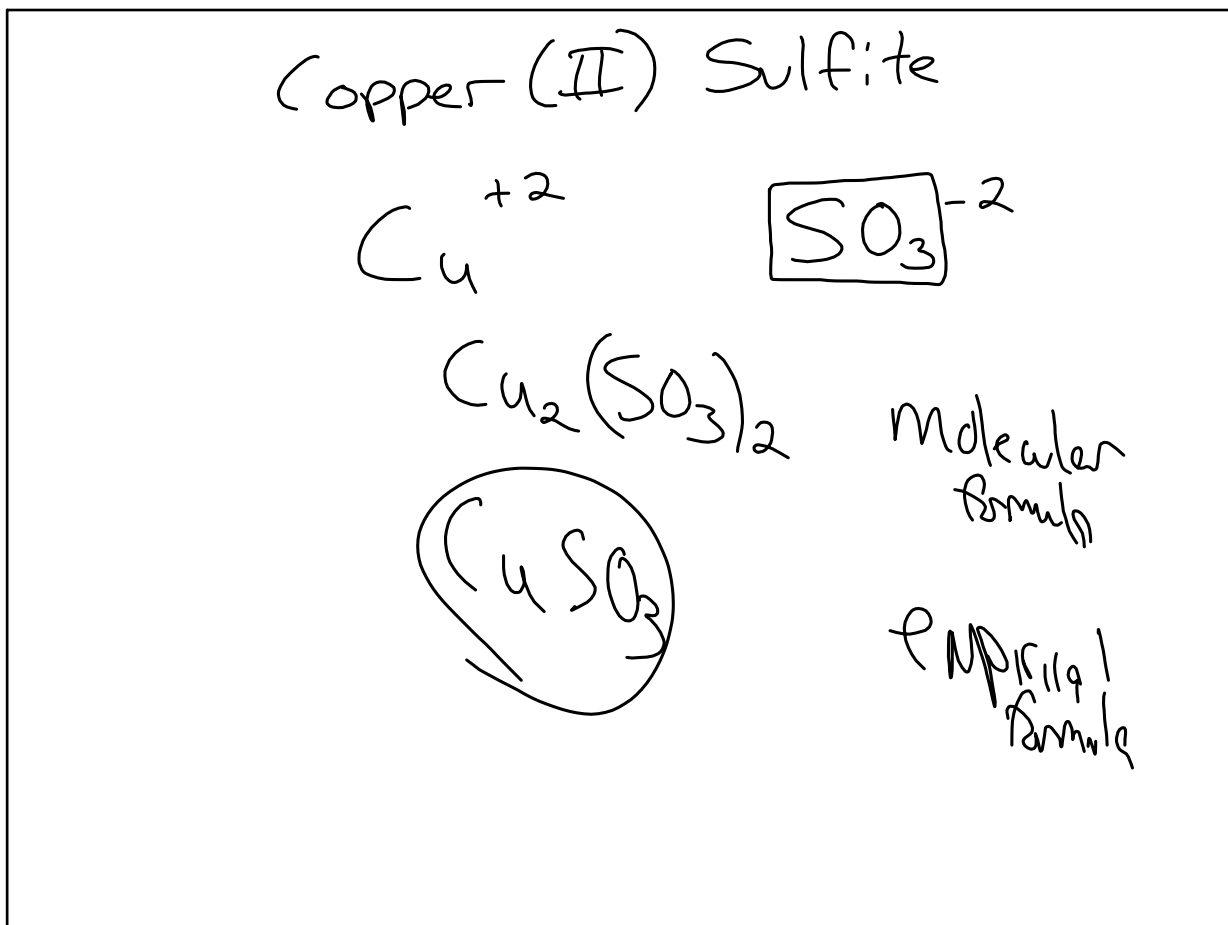 Copper (II) Sulfite
Cu⁺² SO₃⁻²
Cu₂(SO₃)₂
Molecular
formula
CuSO₃
empirical
formula